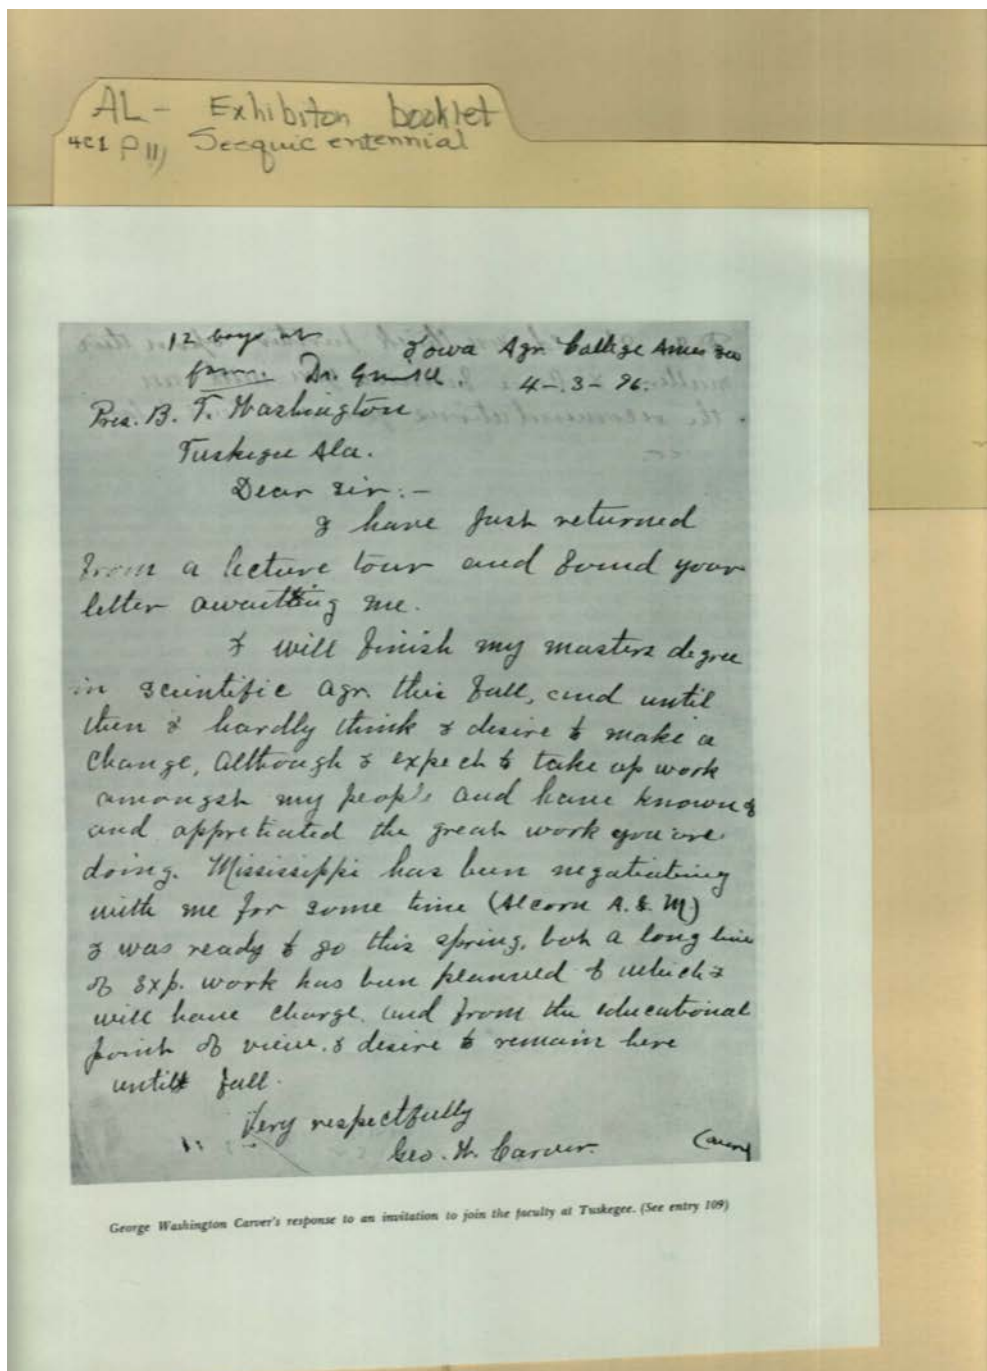 AL - Exhibiton booklet
4C1 P11, Sesquicentennial
12 boys at
farm. Dr.
Iowa Agr. College Ames Ioa
4-3-96.
Pres. B. T. Washington
Tuskegee Ala.
Dear Sir:-
I have just returned
from a lecture tour and found your
letter awaiting me.
I will finish my masters degree
in scientific Agr. this fall, and until
then I hardly think I desire to make a
change, although I expect to take up work
amongst my people and have known of
and appretiated the great work you are
doing. Mississippi has been negatiating
with me for some time (Alcorn A. & M)
I was ready to go this spring, but a long line
of Exp. work has been planned of which I
will have charge, and from the educational
point of view, I desire to remain here
until fall.
Very respectfully
Geo. W. Carver.
Carver
George Washington Carver's response to an invitation to join the faculty at Tuskegee. (See entry 109)